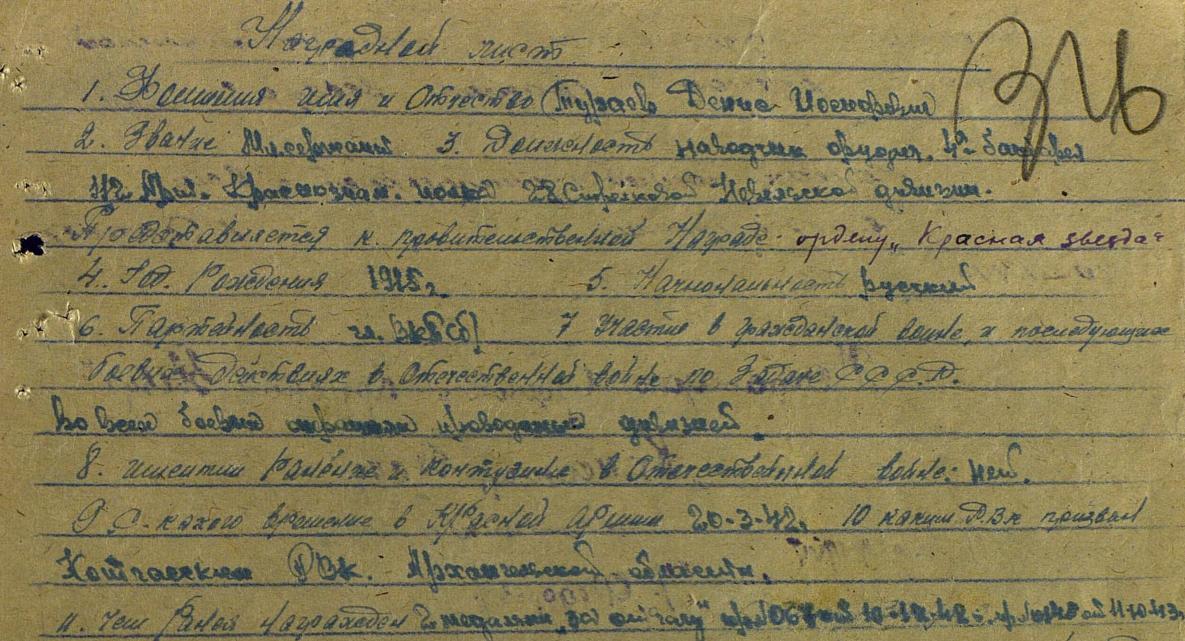 Наградной лист
346
1. Фамилия имя и Отчество Денис
2. Звание Мл. сержант 3. Должность наводчик 4й батареи
Арт. Краснознам. полка Стрелковой Невельской дивизии.
Представляется к правительственной Награде: ордену „Красная звезда"
4. Год. Рождения 1915г. 5. Национальность русский
6. Партейность чл. ВКП(б) 7 Участие в гражданской войне, и последующих
боевых действиях в Отечественной войне по СССР.
Во всех боевых операциях проводимых дивизией.
8. имеетли Ранение и контузение в Отечественной войне: нет.
9 С-какого время в Красной армии 20-3-42. 10 каким РВк призван
Котласским РВК. Архангельской области.
11. Чем Ранее Награжден 2 медалями „За отвагу"